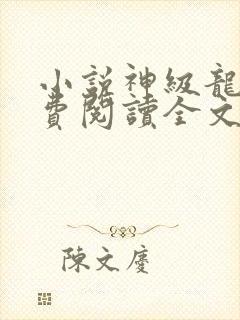 小說神級龍
費閱讀全文
陳文慶